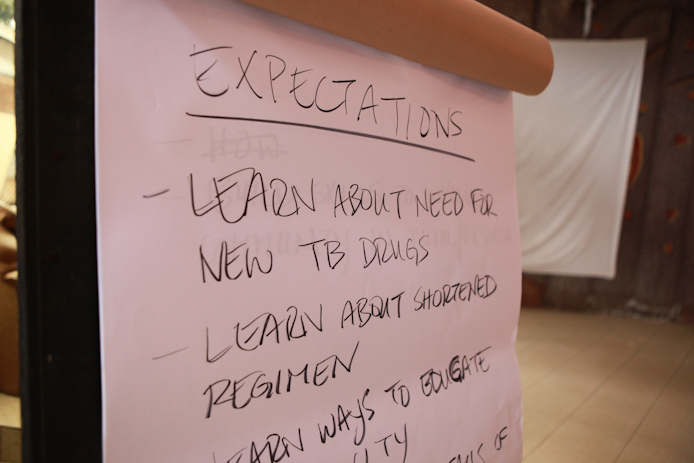 EXPECTATIONS
- LEARN ABOUT NEED FOR
NEW TB DRUGS
- LEARN ABOUT SHORTENED
REGIMEN
LEARN WAYS TO EDUCATE
OF